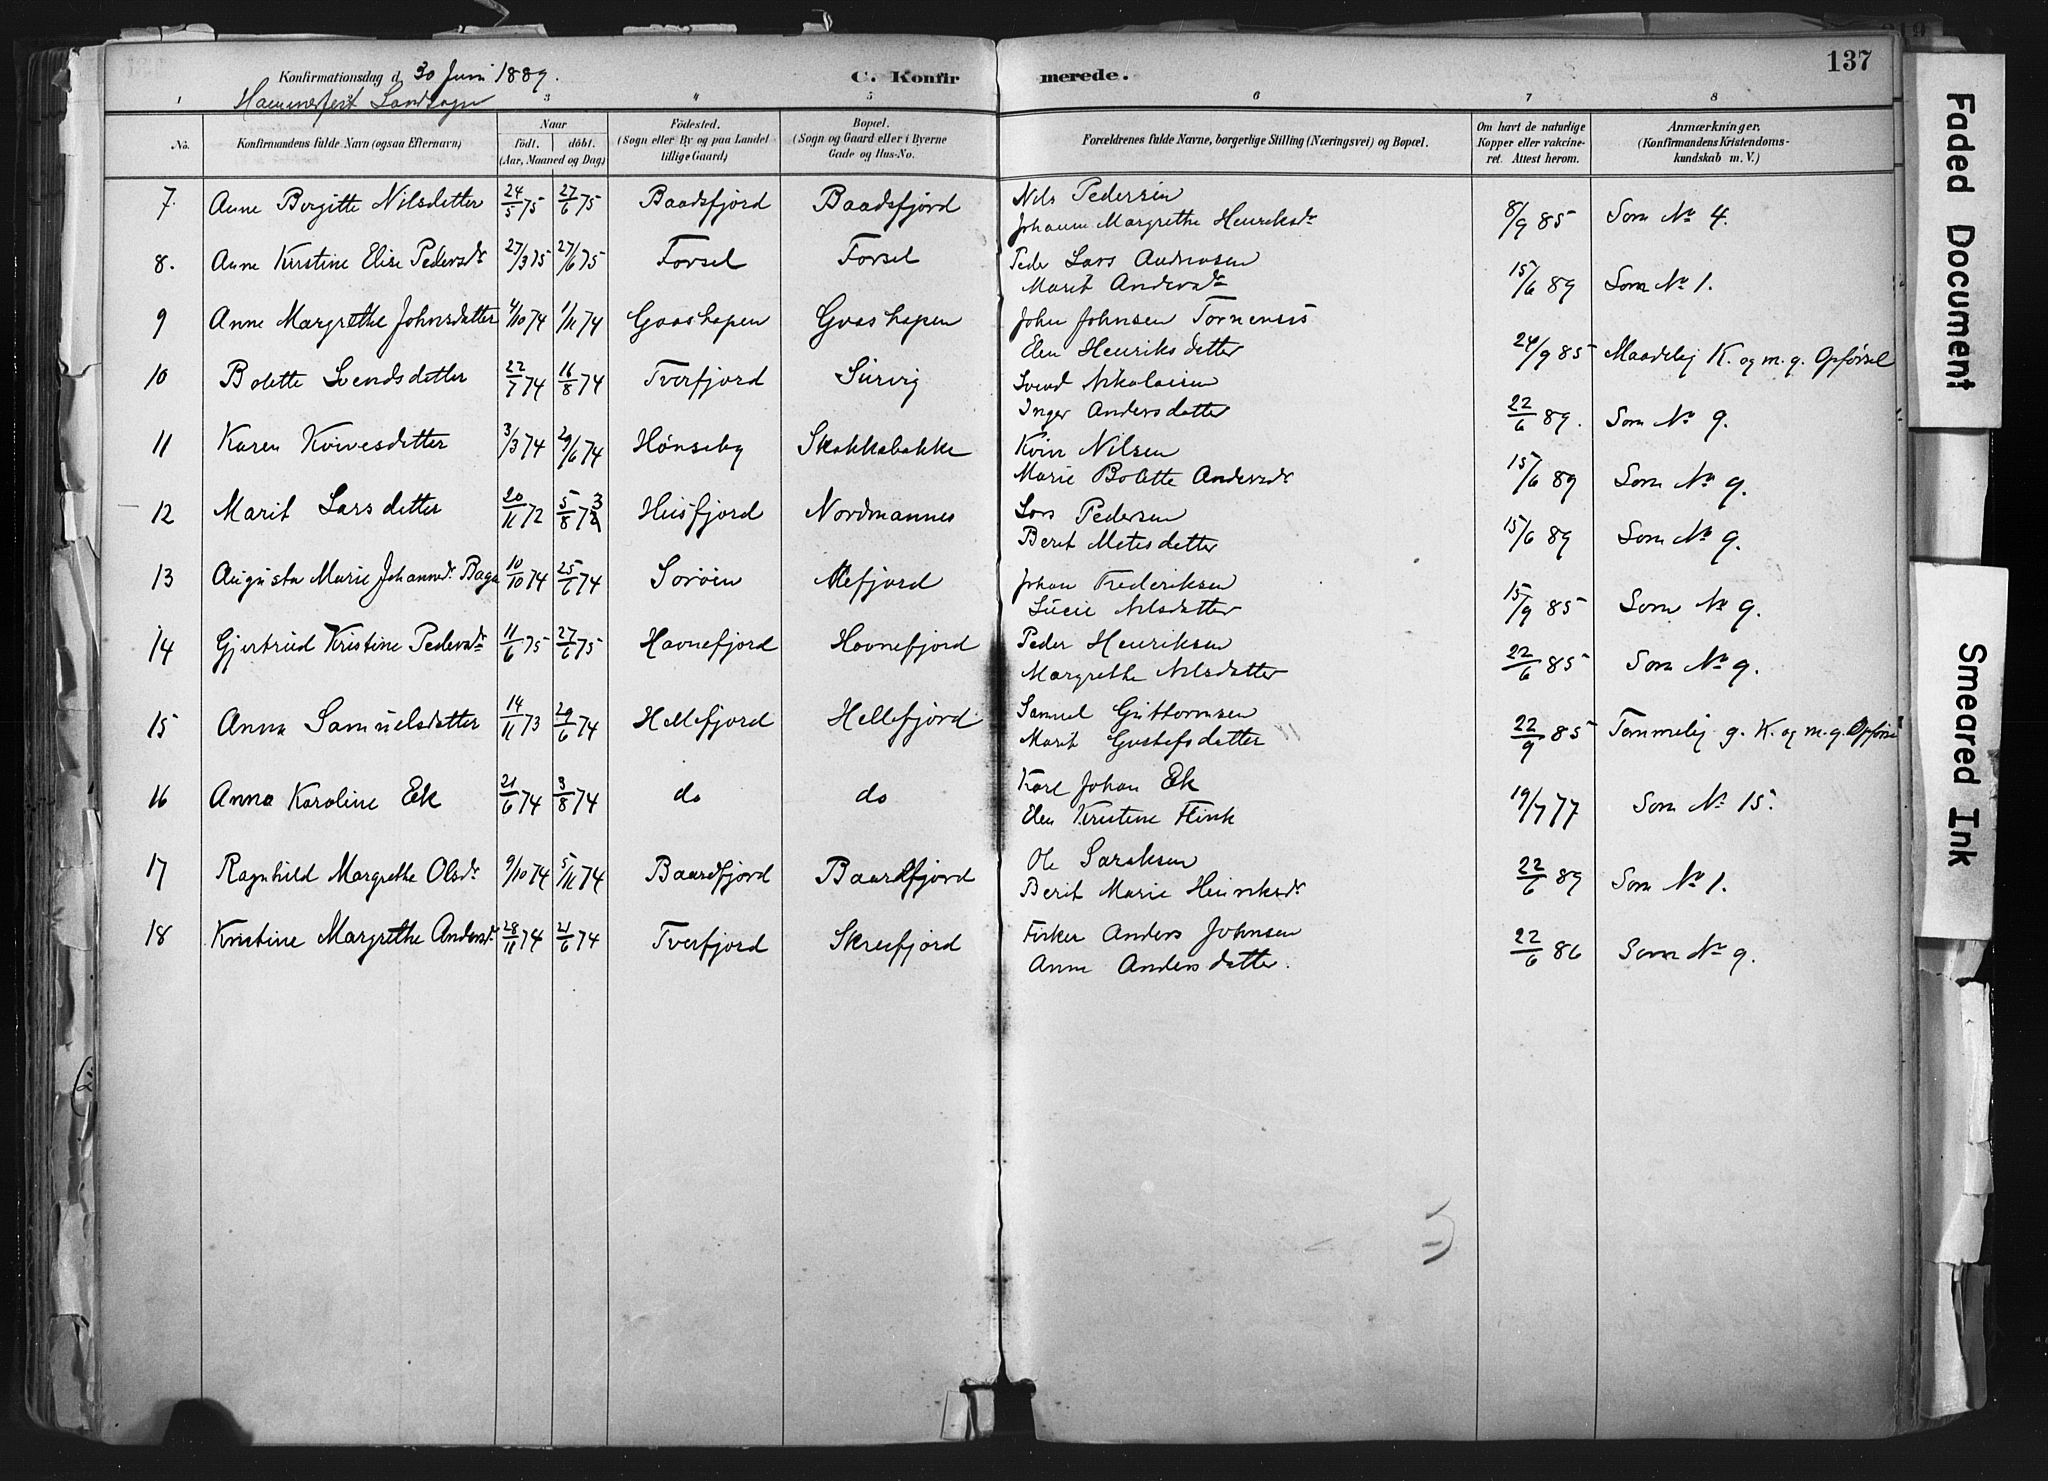 137
Konfirmationsdag d. 30 Juni 1889.
C. Konfirmerede.
Hammerfest Landsogn
1 3 4 5 6 7 8
No. Konfirmandens fulde Navn (ogsaa Efternavn) Naar født. døbt. (Aar, Maaned og Dag) Fødested. (Sogn eller By og paa Landet tillige Gaard) Bopæl. (Sogn og Gaard eller i Byerne Gade og Hus-No. Forældrenes fulde Navne, borgerlige Stilling (Næringsvei) og Bopæl. Om havt de naturlige Kopper eller vakcineret. Attest herom. Anmærkninger. (Konfirmandens Kristendomskundskab m. V.)
7. Anne Birgitte Nilsdatter 24/5 75 27/6 75 Baadsfjord Baadsfjord Nils Pedersen
Johanne Margrethe Henriksdr 8/9 85 Som No 4.
8. Anne Kristine Elise Pedersdr 27/3 75 27/6 75 Forsel Forsel Peder Lars Andreasen
Marit Andersdr 15/6 89 Som No 1.
9 Anne Margrethe Johnsdatter 4/10 74 1/11 74 Gaashopen Gaashopen John Johnsen Tornensis
Elen Henriksdatter 24/9 85 Maadelig K. og m. g. Opførsel
10 Bolette Svendsdatter 22/7 74 16/8 74 Tverfjord Survig Svend Nikolaisen
Inger Andersdatter 22/6 89. Som No 9.
11 Karen Kvivesdatter 3/3 74 29/6 74 Hønseby Skakkebakke Kvive Nilsen
Marie Bolette Andersdr 15/6 89 Som No 9.
12 Marit Larsdatter 20/11 72 5/8 73 Husfjord Nordmannes Lars Pedersen
Berit Matesdatter 15/6 89 Som No 9.
13 Augusta Marie Johannsdr Baga 10/10 74 25/6 74 Sørøen Alefjord Johan Frederiksen
Lucie Nilsdatter 15/9 85 Som No 9.
14 Gjertrud Kristine Pedersdr 11/6 75 27/6 75 Havnefjord Havnefjord Peder Henriksen
Margrethe Nilsdatter 22/6 85 Som No 9.
15 Anna Samuelsdatter 14/11 73 29/6 74 Hellefjord Hellefjord Samuel Guttormsen
Marit Gustafsdatter 22/9 85 Temmelig g. K. og m. g. Opførsel
16 Anna Karoline Ek 21/6 74 3/8 74 do do Karl Johan Ek
Elen Kristine Flink 19/7 77 Som No 15.
17 Ragnhild Margrethe Olsdr 9/10 74 5/11 74 Baardfjord Baardfjord Ole Saraksen
Berit Marie Henriksdr 22/6 89 Som No 1.
18 Kristine Margrethe Andersdr 28/11 74 21/6 74 Tverfjord Skreifjord Fisker Anders Johnsen
Anne Andersdatter. 22/6 86 Som No 9.
Faded Document
Smeared Ink